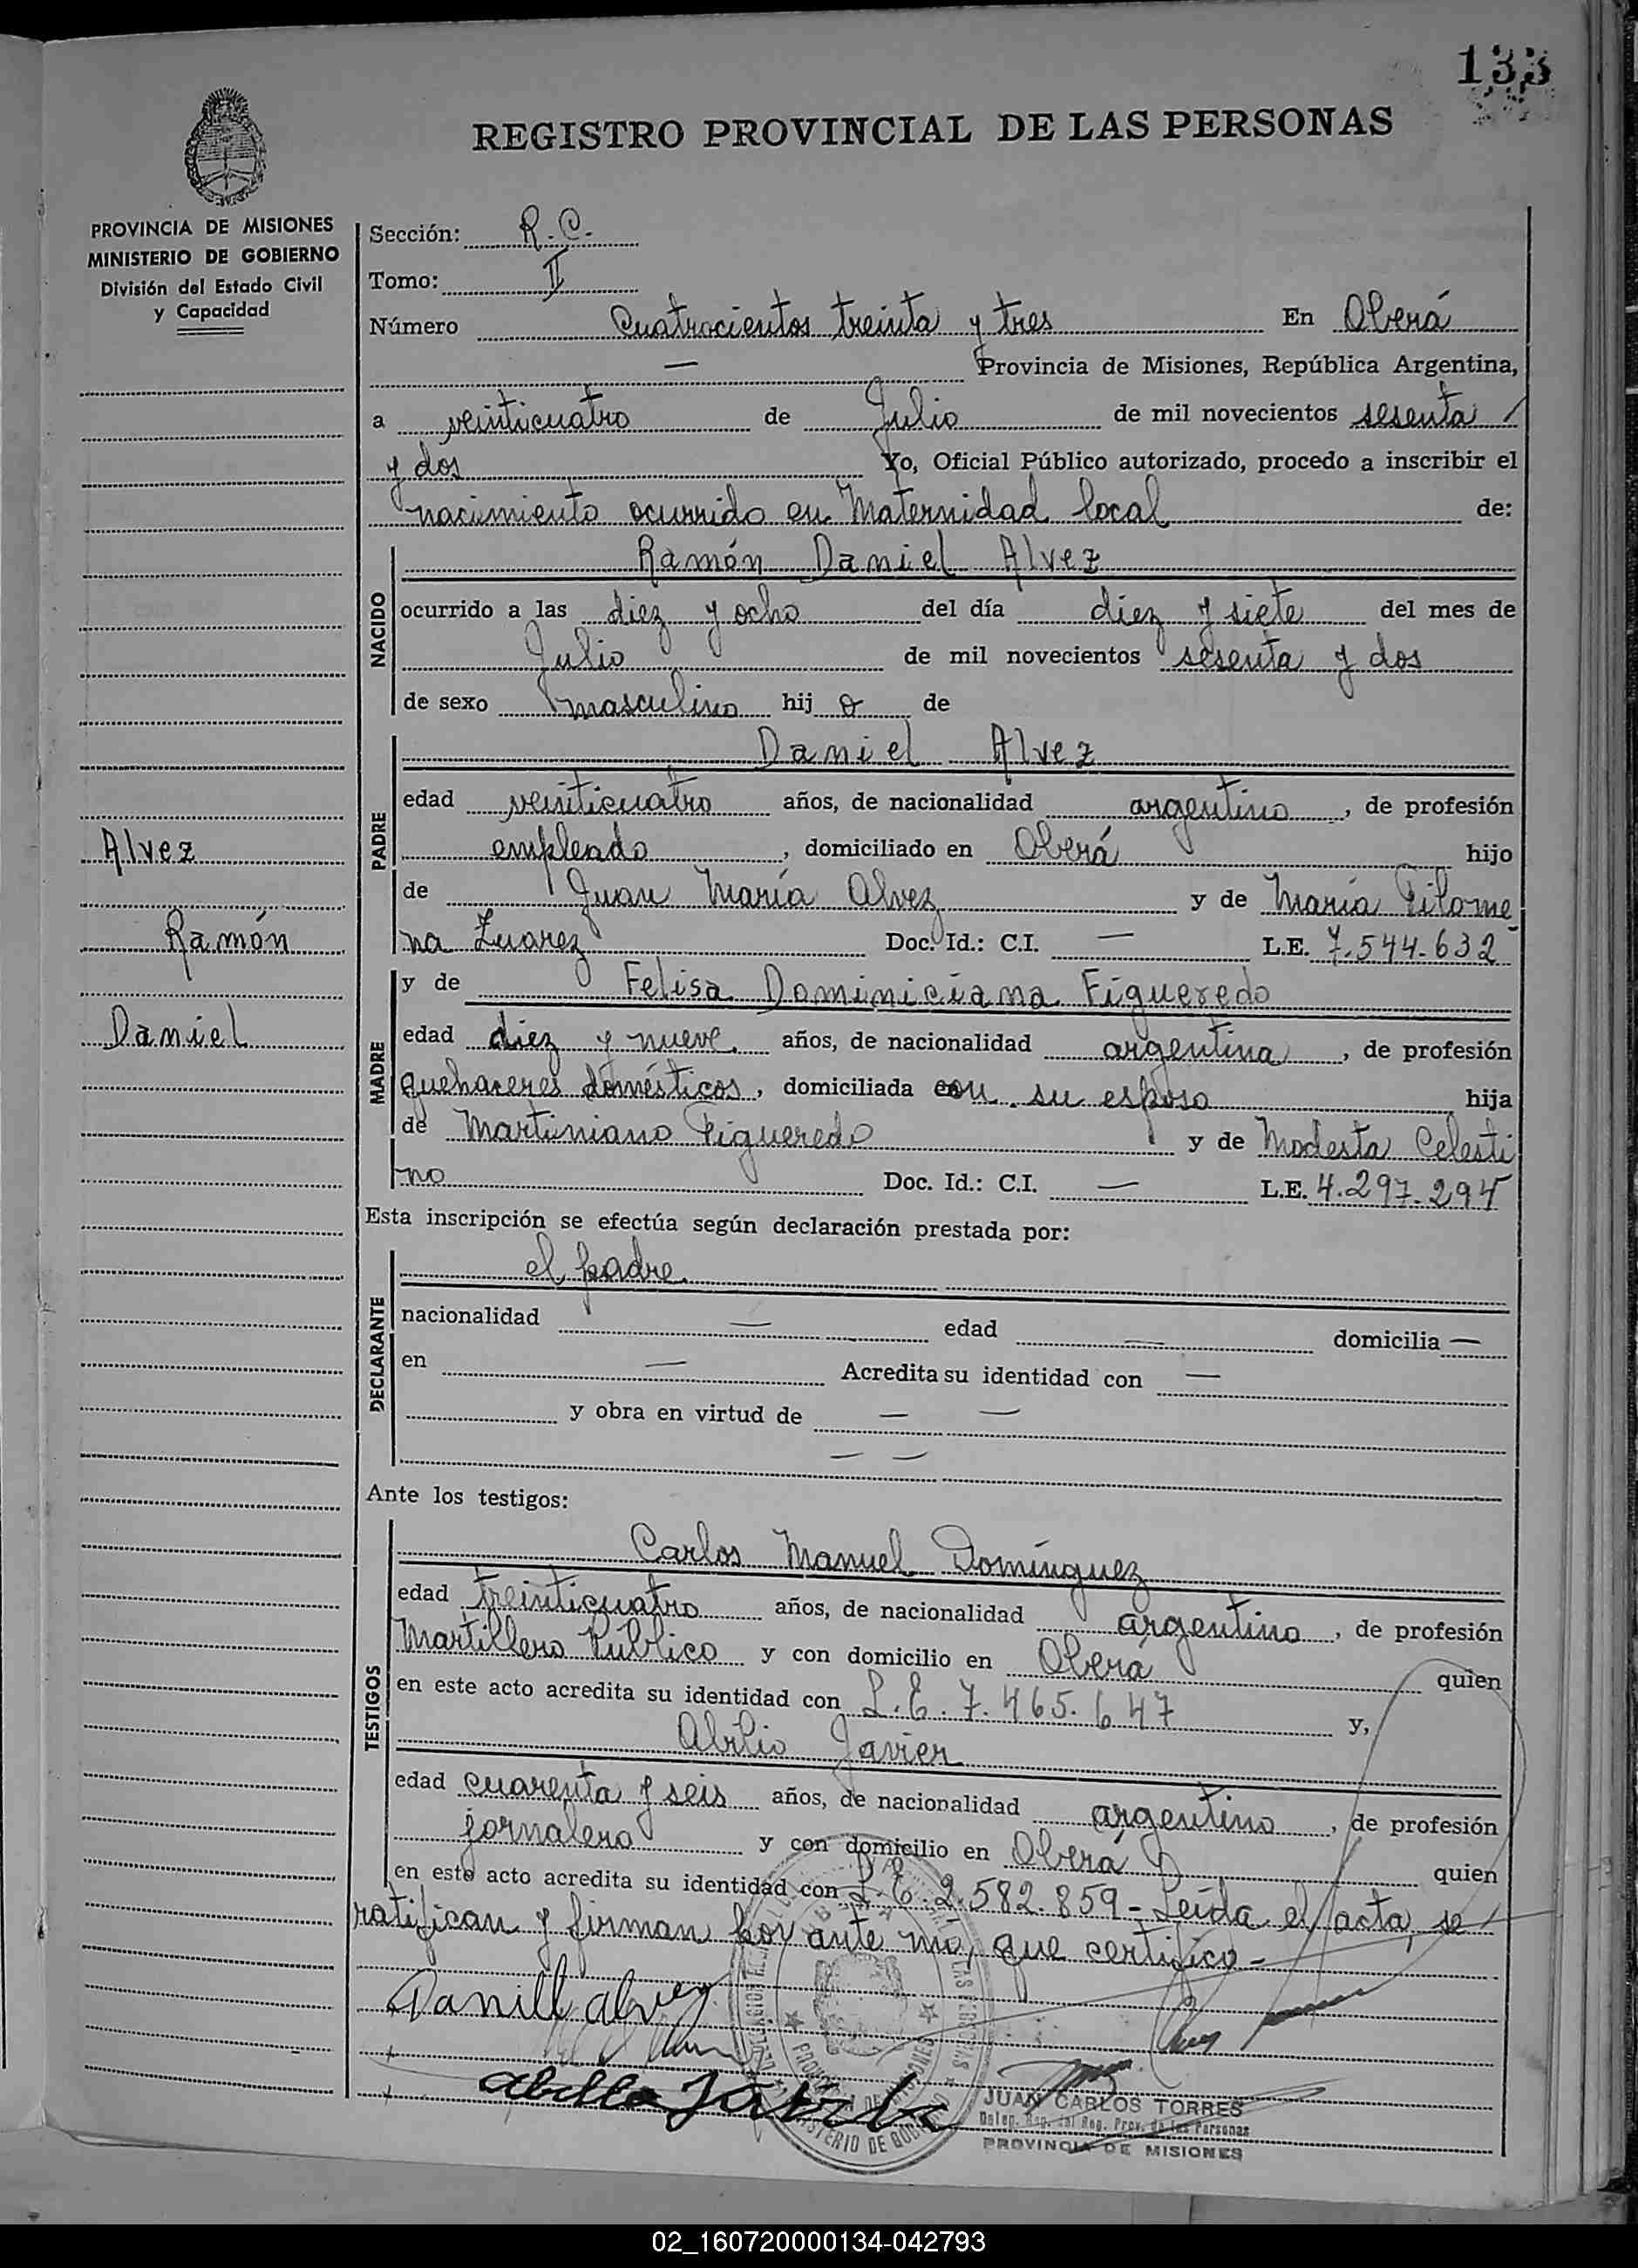 133
REGISTRO PROVINCIAL DE LAS PERSONAS
PROVINCIA DE MISIONES
MINISTERIO DE GOBIERNO
División del Estado Civil
y Capacidad
Alvez
Ramón
Daniel
Sección: R.C.
Tomo: II
Número Cuatrocientos treinta y tres En Oberá
— Provincia de Misiones, República Argentina,
a veinticuatro de Julio de mil novecientos sesenta /
y dos Yo, Oficial Público autorizado, procedo a inscribir el
nacimiento ocurrido en Maternidad local de:
NACIDO
Ramón Daniel Alvez
ocurrido a las diez y ocho del día diez y siete del mes de
Julio de mil novecientos sesenta y dos
de sexo masculino hij o de
PADRE
Daniel Alvez
edad veinticuatro años, de nacionalidad argentino, de profesión
empleado, domiciliado en Oberá hijo
de Juan María Alvez y de María Filome
na Zuarez Doc. Id.: C.I. — L.E. 7.544.632
MADRE
y de Felisa Dominiciana Figueredo
edad diez y nueve años, de nacionalidad argentina, de profesión
quehaceres domésticos, domiciliada con su esposo hija
de Martiniano Figueredo y de Modesta Celesti
no Doc. Id.: C.I. — L.E. 4.297.294
Esta inscripción se efectúa según declaración prestada por:
DECLARANTE
el padre
nacionalidad — edad — domicilia —
en — Acredita su identidad con —
y obra en virtud de — —
— —
Ante los testigos:
TESTIGOS
Carlos Manuel Domínguez
edad treinticuatro años, de nacionalidad argentino, de profesión
Martillero Público y con domicilio en Oberá quien
en este acto acredita su identidad con L.E. 7.465.647 y,
Abilio Javier
edad cuarenta y seis años, de nacionalidad argentino, de profesión
jornalero y con domicilio en Oberá quien
en este acto acredita su identidad con L.E. 2.582.859 - Leída el acta, se
ratifican y firman por ante mí, que certifico -
Daniel Alvez
JUAN CARLOS TORRES
Deleg. Reg. del Reg. Prov. de las Personas
PROVINCIA DE MISIONES
02_160720000134-042793